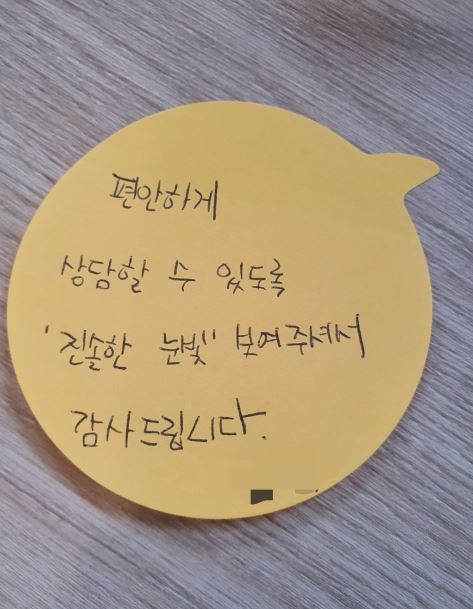 편안하게
상담할 수 있도록
'진솔한 눈빛" 보여주셔서
감사드립니다.